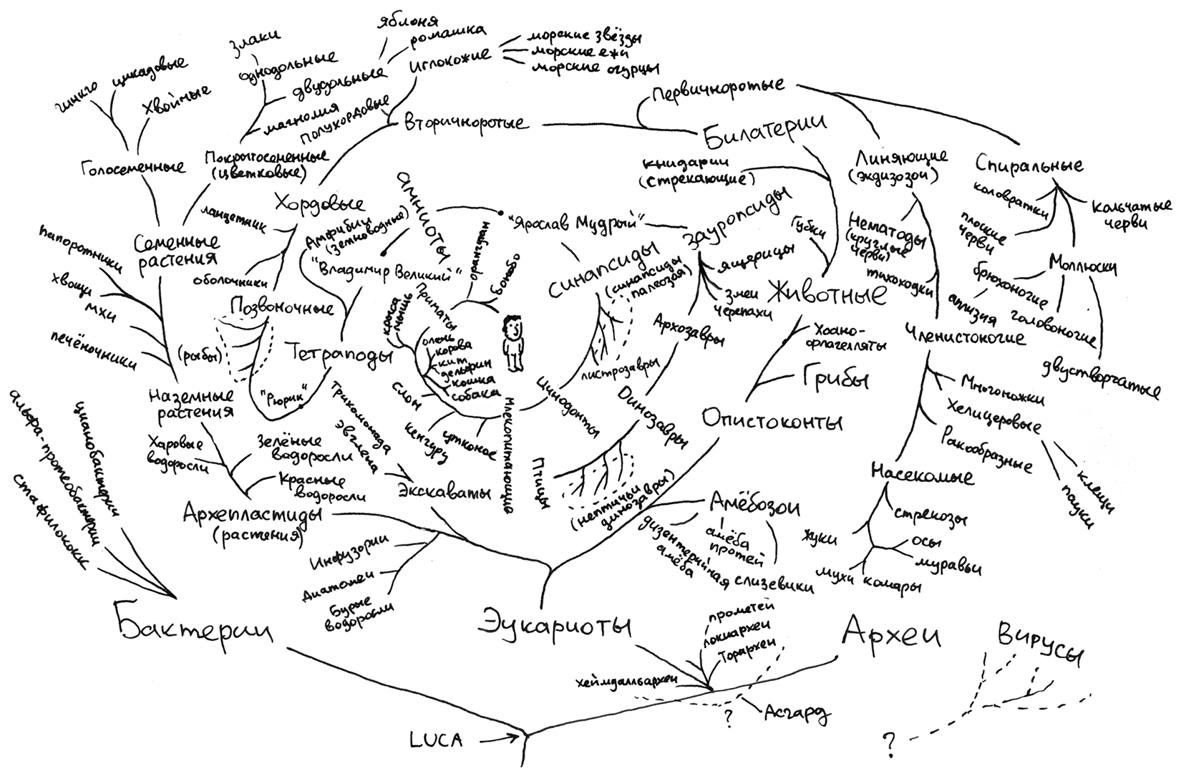 яблоня
ромашка
Иглокожие
морские звёзды
морские ежи
морские огурцы
злаки
однодольные
двудольные
магнолия
полухордовые
гинкго
цикадовые
хвойные
Голосеменные
Покрытосеменные
(цветковые)
Вторичноротые
Первичноротые
Билатерии
книдарии
(стрекающие)
Линяющие
(экдизозои)
Спиральные
коловратки
Кольчатые
черви
плоские
черви
Моллюски
брюхоногие
аплизия
головоногие
двустворчатые
Нематоды
(круглые
черви)
тихоходки
Членистоногие
Многоножки
Хелицеровые
Ракообразные
клещи
пауки
Насекомые
стрекозы
жуки
осы
муравьи
мухи
комары
Хордовые
ланцетник
оболочники
Семенные
растения
папоротники
хвощи
мхи
печёночники
Позвоночные
(рыбы)
"Рюрик"
Тетраподы
Амфибии
(земноводные)
"Владимир Великий"
амниоты
"Ярослав Мудрый"
Зауропсиды
ящерицы
Змеи
черепахи
Архозавры
Динозавры
Птицы
(нептичьи
динозавры)
синапсиды
(синапсиды
палеозоя)
листрозавры
Цинодонты
Млекопитающие
утконос
кенгуру
слон
Приматы
орангутан
Бонобо
крыса
мышь
олень
корова
кит
дельфин
кошка
собака
Губки
Животные
Хоано-
флагелляты
Грибы
Опистоконты
Амёбозои
амёба
протей
дизентерийная
амёба
слизевики
Наземные
растения
Харовые
водоросли
Зелёные
водоросли
Красные
водоросли
Архепластиды
(растения)
Трихомонада
эвглена
Экскаваты
Инфузории
Диатомеи
Бурые
водоросли
цианобактерии
альфа-протеобактерии
стафилококк
Бактерии
Эукариоты
Археи
Вирусы
прометей
локиархеи
Торархеи
хеймдалльархеи
?
Асгард
?
LUCA